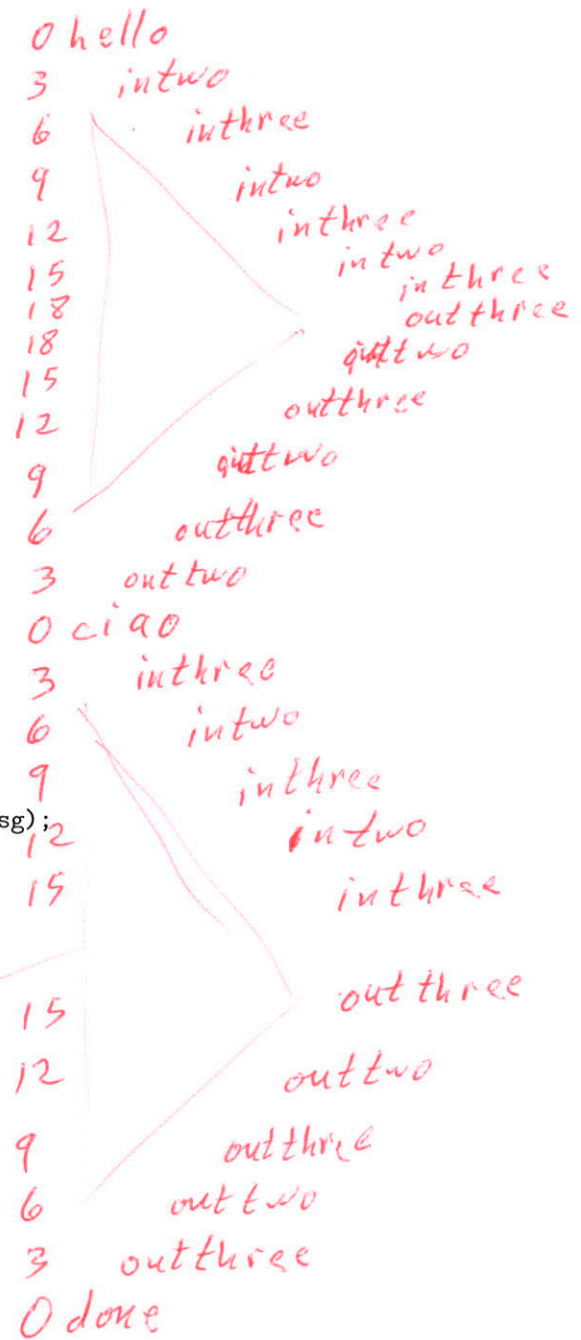 0 hello
3 intwo
6 inthree
9 intwo
12 inthree
15 intwo
18 inthree
18 outthree
15 outtwo
12 outthree
9 outtwo
6 outthree
3 outtwo
0 ciao
3 inthree
6 intwo
9 inthree
sg);
12 intwo
15 inthree
15 outthree
12 outtwo
9 outthree
6 outtwo
3 outthree
0 done